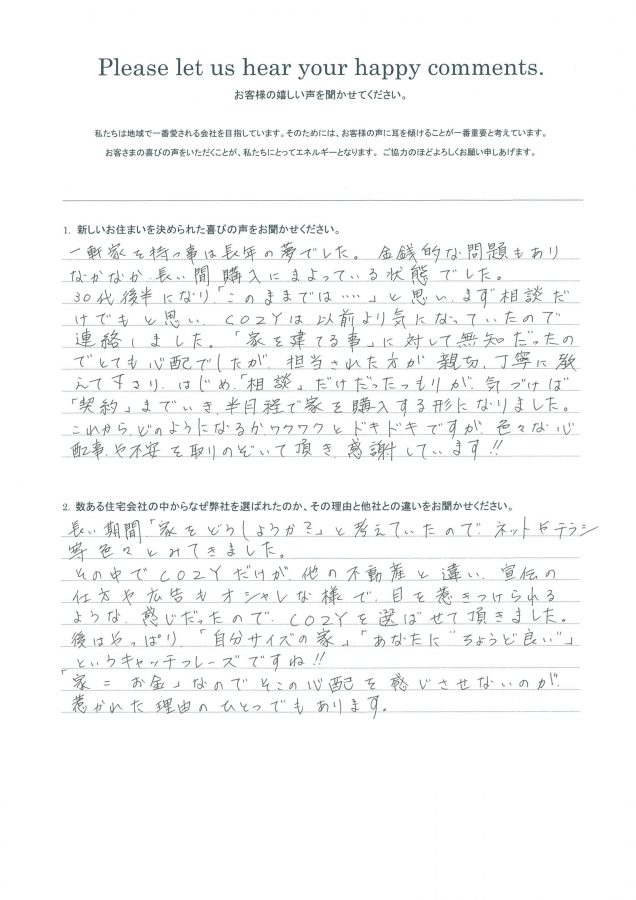 Please let us hear your happy comments.
お客様の嬉しい声を聞かせてください。
私たちは地域で一番愛される会社を目指しています。そのためには、お客様の声に耳を傾けることが一番重要と考えています。
お客さまの喜びの声をいただくことが、私たちにとってエネルギーとなります。ご協力のほどよろしくお願い申しあげます。
1. 新しいお住まいを決められた喜びの声をお聞かせください。
一軒家を持つ事は長年の夢でした。金銭的な問題もあり
なかなか、長い間購入にまよっている状態でした。
30代後半になり、「このままでは……」と思い、まず相談だ
けでもと思い、COZYは以前より気になっていたので
連絡しました。「家を建てる事」に対して無知だったの
でとても心配でしたが、担当された方が親切、丁寧に教
えて下さり、はじめ、「相談」だけだったつもりが、気づけば
「契約」までいき、半月程で家を購入する形になりました。
これから、どのようになるかワクワクとドキドキですが、色々な心
配事や不安を取りのぞいて頂き、感謝しています!!
2. 数ある住宅会社の中からなぜ弊社を選ばれたのか、その理由と他社との違いをお聞かせください。
長い期間「家をどうしようか?」と考えていたので、ネットやチラシ
等色々とみてきました。
その中でCOZYだけが、他の不動産と違い、宣伝の
仕方や広告もオシャレな様で、目を惹きつけられる
ような、感じだったので、COZYを選ばせて頂きました。
後はやっぱり、「自分サイズの家」「あなたに"ちょうど良い"」
というキャッチフレーズですね!!
「家=お金」なのでそこの心配を感じさせないのが、
惹かれた理由のひとつでもあります。